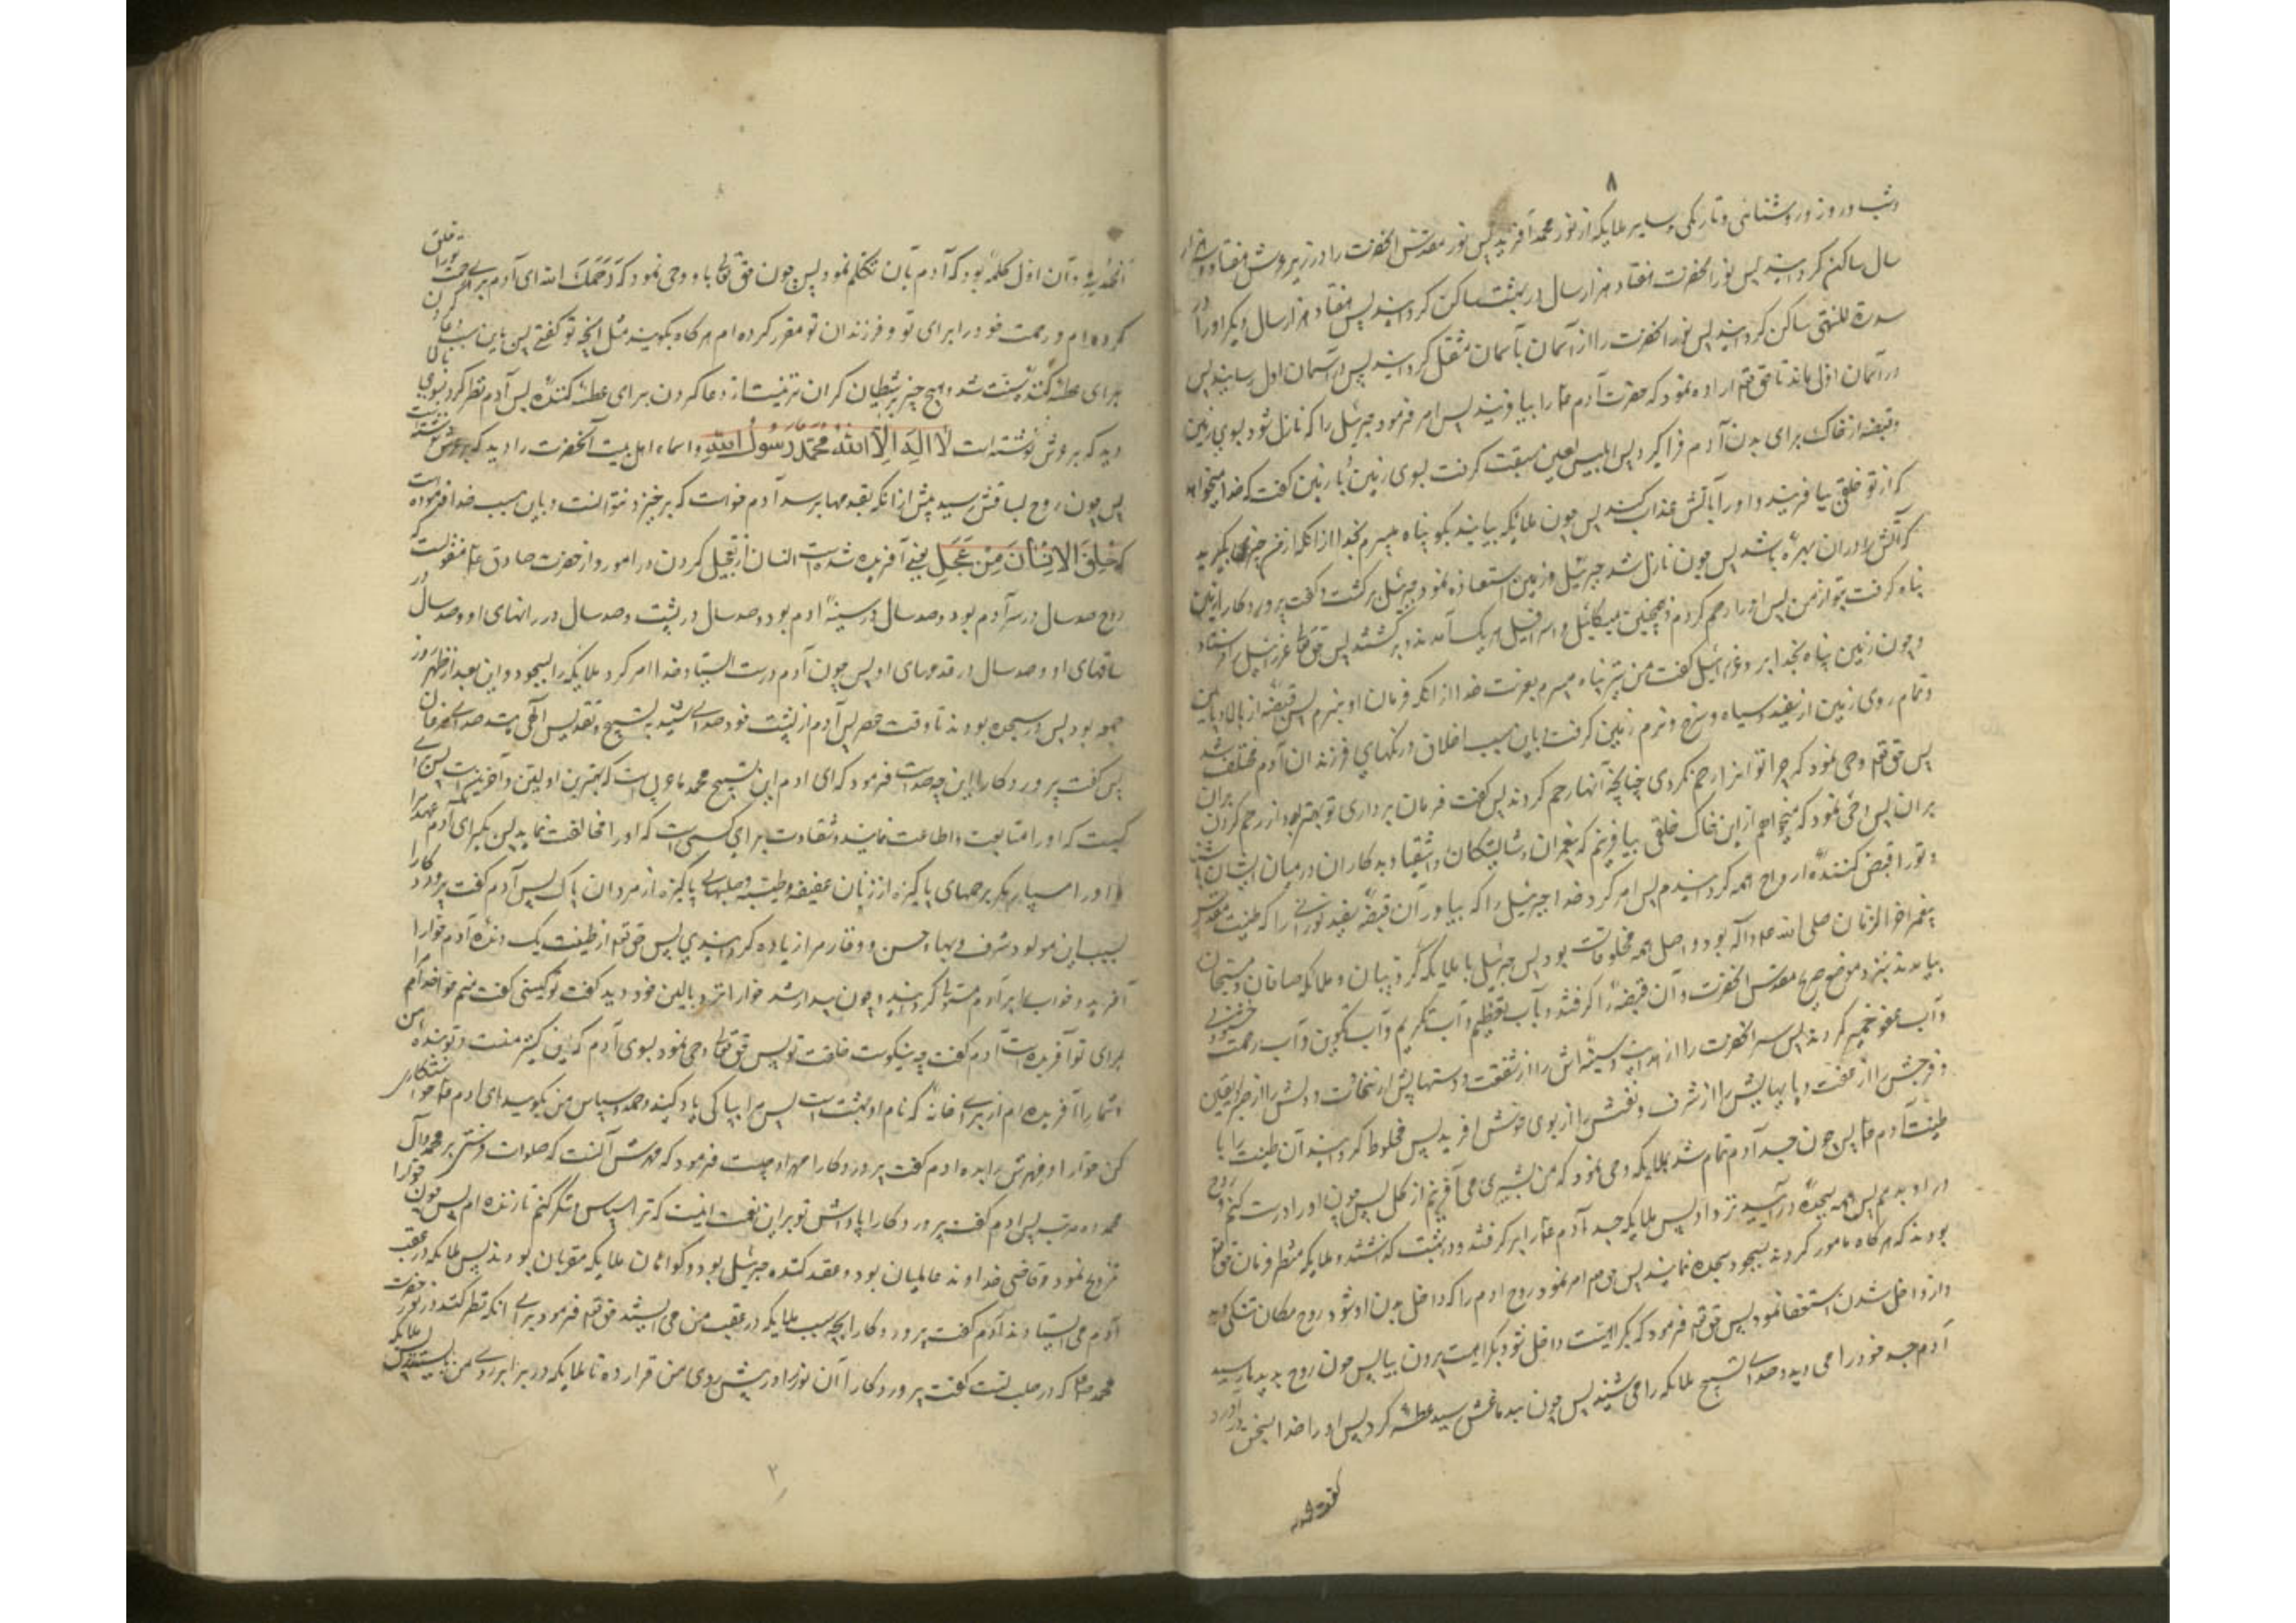 ۸
و شب و روز و روشنائی و تاریکی و سایر ملایکه از نور محمد آفرید پس نور مقدس آنحضرت را در زیر عرش هفتاد و سه هزار
سال ساکن گردانید پس نور آنحضرت هفتاد هزار سال در بهشت ساکن گردانید پس هفتاد هزار سال دیگر او را در
سدرة المنتهی ساکن گردانید پس نور آنحضرت را از آسمان بآسمان منتقل گردانید پس در آسمان اول رسانید پس
در آسمان اول ماند تا حق تعم اراده نمود که حضرت آدم ع را بیافریند پس امر فرمود جبرئیل را که نازل شود بسوی زمین
و قبضه از خاک برای بدن آدم فرا گیرد پس ابلیس لعین سبقت گرفت بسوی زمین با زمین گفت که خدا میخواهد
که از تو خلقی بیافریند و او را بآتش عذاب کند پس چون ملایکه بیایند بگو پناه میبرم بخدا از آنکه از من چیزی بگیرید
که آتش را در آن بهره باشد پس چون نازل شد جبرئیل و زمین استعاذه نمود جبرئیل برگشت و گفت پروردگارا زمین
پناه گرفت بتو از من پس او را رحم کردم و همچنین میکائیل و اسرافیل هر یک آمدند و برگشتند پس حق تعالی عزرائیل را فرستاد
و چون زمین پناه بخدا برد عزرائیل گفت من نیز پناه میبرم بعزت خدا از آنکه فرمان او نبرم پس قبضه از بالا و پایین
و تمام روی زمین از سفید و سیاه و سرخ و نرم زمین گرفت باین سبب اخلاق و رنگهای فرزندان آدم مختلف شد
پس حق تعم وحی نمود که چرا تو اینرا رحم نکردی چنانچه آنها رحم کردند پس گفت فرمان برداری تو بهتر بود از رحم کردن بر آن
بر آن پس وحی نمود که میخواهم از این خاک خلقی بیافرینم که پیغمبران و شایستگان و اشقیا و بدکاران در میان ایشان باشند
و تو را قبض کننده ارواح همه گردانیدم پس امر کرد خدا جبرئیل را که بیاور آن قبضه سفید نورانی را که طینت مقدس
پیغمبر آخر الزمان صلی الله علیه و آله بود و اصل همه مخلوقات بود پس جبرئیل با ملایکه کروبیان و ملایکه صافان و مسبحان
بیامدند بنزد موضع ضریح مقدس آنحضرت و آن قبضه را گرفتند و بآب تعظیم و آب تکریم و آب تکوین و آب رحمت و خشنودی
و آب عفو خمیر کردند پس سر آنحضرت را از هدایت و سینه‌اش را از شفقت و دستهایش از سخاوت و دلش را از صبر و یقین
و فرجش را از عفت و پاهایش را از شرف و نفسش را از بوی خوش آفرید پس مخلوط گردانید آن طینت را با
طینت آدم ع پس چون جسد آدم تمام شد بملایکه وحی نمود که من بشری می آفرینم از گل پس چون او را درست کنم و روح
در او بدمم پس همه بسجده درآیید نزد او پس ملایکه جسد آدم ع را برگرفتند و در بهشت گذاشتند و ملایکه منتظر فرمان حق تعم
بودند که هر گاه مامور گردند بسجود سجده نمایند پس حق تعم امر نمود روح آدم را که داخل بدن او شود روح مکان تنگی دید
و از داخل شدن استعفا نمود پس حق تعم فرمود که بکراهت داخل شو و بکراهت بیرون بیا پس چون روح بدیدها رسید
آدم جسد خود را می دید و صدای تسبیح ملائکه را می شنید پس چون بدماغش رسید عطسه کرد پس او را خدا بسخن درآورد
گفت
الحمد لله و آن اول کلمه بود که آدم بآن تکلم نمود پس چون حق تعالی باو وحی نمود که رَحِمَکَ الله ای آدم برای رحمت تو را خلق
کرده‌ام و رحمت خود را برای تو و فرزندان تو مقرر کرده‌ام هر گاه بگویند مثل آنچه تو گفتی پس باین سبب دعا کردن
برای عطسه کننده سنت شد و هیچ چیز بر شیطان گران تر نیست از دعا کردن برای عطسه کننده پس آدم نظر کرد بسوی بالا
دید که بر عرش نوشته است لا اله الا الله محمد رسول الله و اسماء اهل بیت آنحضرت را دید که بر عرش نوشته است
پس چون روح بساقش رسید پیش از آنکه بقدمها برسد آدم خواست که برخیزد نتوانست و باین سبب خدا فرموده است
که خُلِقَ الاِنسانُ مِن عَجَلٍ یعنی آفریده شده است انسان از تعجیل کردن در امور و از حضرت صادق ع منقولست که
روح صد سال در سر آدم بود و صد سال در سینه آدم بود و صد سال در پشت و صد سال در رانهای او و صد سال در
ساقهای او و صد سال در قدمهای او پس چون آدم درست ایستاد خدا امر کرد ملایکه را بسجود و این بعد از ظهر روز
جمعه بود پس در سجده بودند تا وقت عصر پس آدم از پشت خود صدایی شنید به تسبیح و تقدیس الهی مانند صدای مرغان
پس گفت پروردگارا این چه صداست فرمود که ای آدم این تسبیح محمد عربی است که بهترین اولین و آخرین است پس
کیست که او را متابعت و اطاعت نماید و شقاوت برای کسی است که او را مخالفت نماید پس بگیر ای آدم عهد مرا
و او را مسپار مگر برحمهای پاکیزه از زنان عفیفه و طیبه و صلبهای پاکیزه از مردان پاک پس آدم گفت پروردگارا
بسبب این مولود شرف و بهاء و حسن و وقار مرا زیاده گردانیدی پس حق تعم از طینت یک دنده آدم حوا را
آفرید و خواب را بر آدم مستولی گردانید و چون بیدار شد حوا را نزد بالین خود دید گفت تو کیستی گفت منم حوا خدا مرا
برای تو آفریده است آدم گفت چه نیکوست خلقت تو پس حق تعالی وحی نمود بسوی آدم که این کنیز منست و تو بنده من
شما را آفریده‌ام از برای خانه که نام او بهشت است پس مرا بپاکی یاد کنید و حمد و سپاس من بگویید ای آدم خواستکاری
کن حوا را و مهرش را بده آدم گفت پروردگارا مهر او چیست فرمود که مهرش آنست که صلوات فرستی بر محمد و آل
محمد ده مرتبه پس آدم گفت پروردگارا پاداش تو بر این نعمت اینست که ترا سپاس و شکر کنم تا زنده‌ام پس چون حوا را
تزویج نمود و قاضی خداوند عالمیان بود و عقد کننده جبرئیل بود و گواهان ملایکه مقربان بودند پس ملایکه در عقب
آدم می ایستادند آدم گفت پروردگارا بچه سبب ملایکه در عقب من می ایستند حق تعم فرمود برای آنکه نظر کنند در نور حضرت
محمد ص که در صلب تست گفت پروردگارا آن نور را در پیش روی من قرار ده تا ملایکه در برابر روی من بایستند پس ملایکه